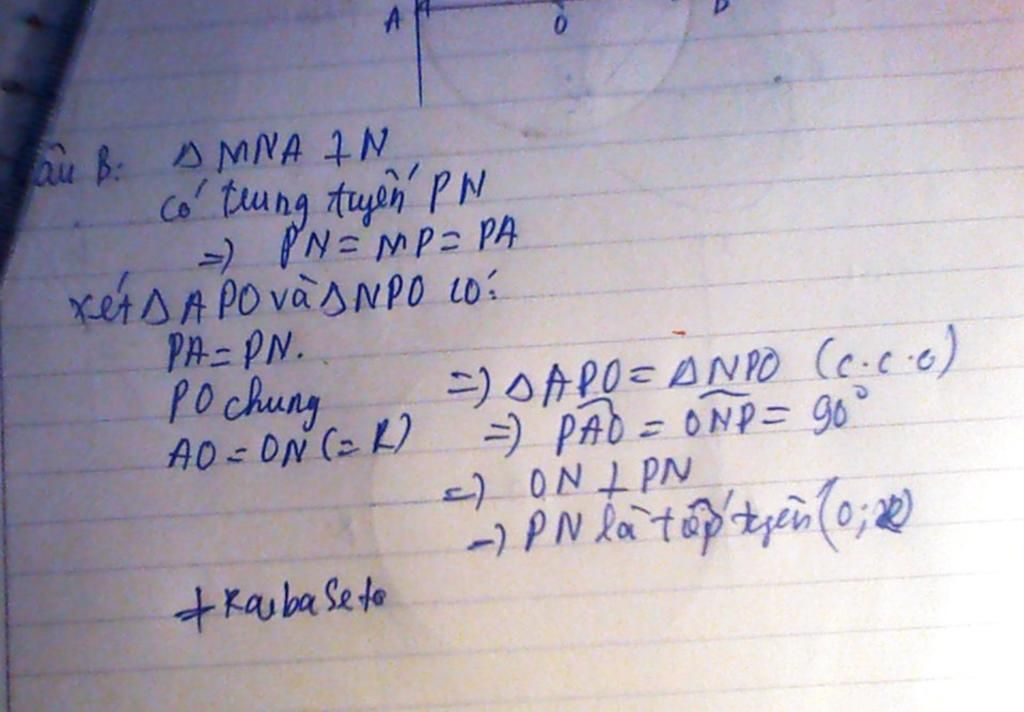 A O B
âu B: Δ MNA ⊥ N
có trung tuyến PN
=> PN = MP = PA
xét Δ APO và Δ NPO có:
PA = PN.
PO chung
AO = ON (= R)
=> Δ APO = Δ NPO (c.c.c)
=> PAO = ONP = 90°
=> ON ⊥ PN
-> PN là tiếp tuyến (O;
+ Kaiba Seto